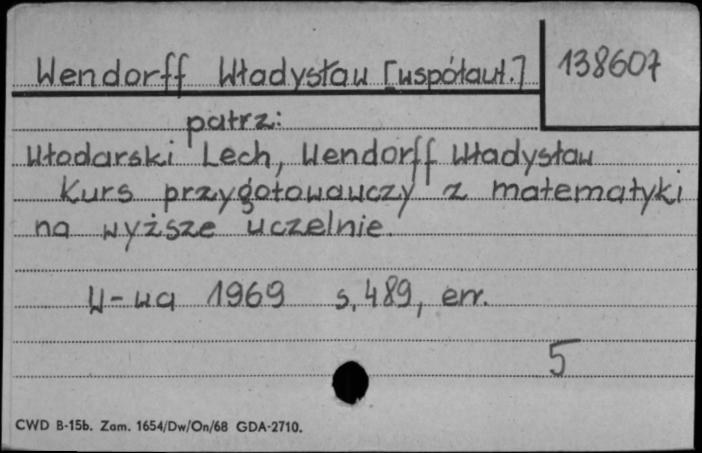 Wendorff Władysław [współaut.] 138607
patrz:
Włodarski Lech, Wendorff Władysław
Kurs przygotowawczy z matematyki
na wyższe uczelnie.
W-wa 1969 s. 489, err.
5
CWD B-15b. Zam. 1654/Dw/On/68 GDA-2710.